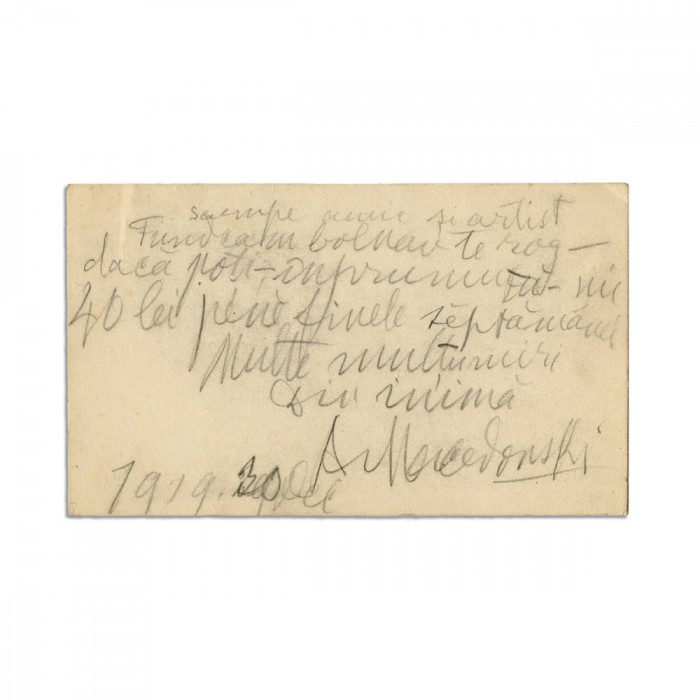 scumpe amic si artist
Fiindcă sunt bolnav te rog —
dacă poti, împrumută-mi
40 lei pene finele septămânei
Multe multumiri
din inimă
A. Macedonski
1919. 30 Dec